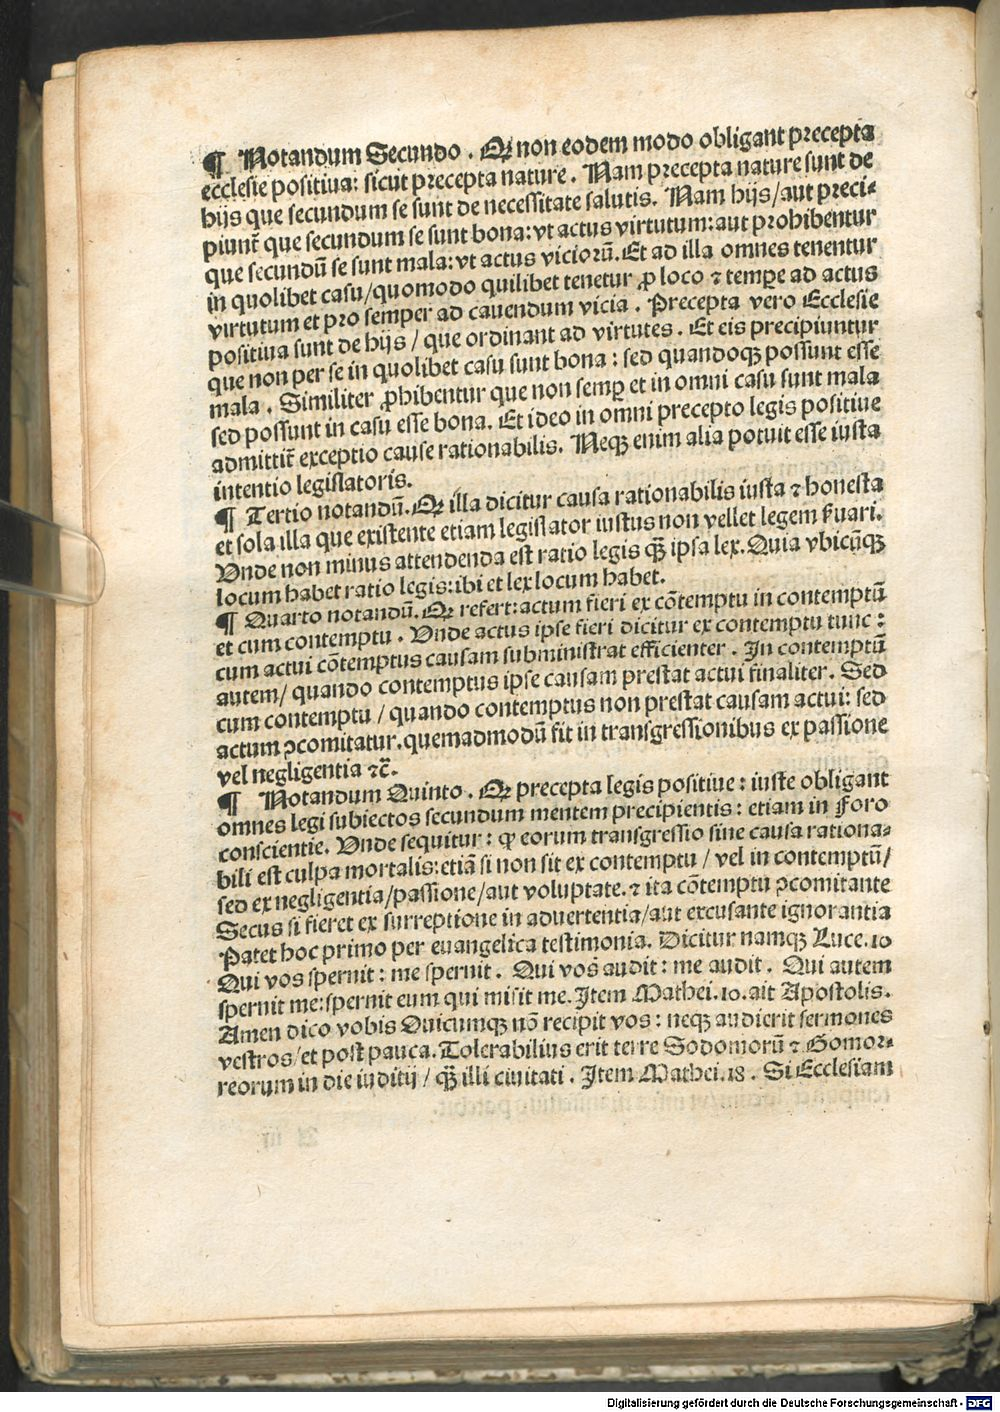 ¶ Notandum Secundo. Qꝛ non eodem modo obligant precepta
ecclesie positiua: sicut precepta nature. Nam precepta nature sunt de
hijs que secundum se sunt de necessitate salutis. Nam hijs/aut preci⸗
piunt̃ que secundum se sunt bona: vt actus virtutum: aut prohibentur
que secundũ se sunt mala: vt actus viciorũ. Et ad illa omnes tenentur
in quolibet casu/quomodo quilibet tenetur ꝓ loco ⁊ temꝑe ad actus
virtutum et pro semper ad cauendum vicia. Precepta vero Ecclesie
positiua sunt de hijs / que ordinant ad virtutes. Et eis precipiuntur
que non per se in quolibet casu sunt bona: sed quandoqꝫ possunt esse
mala. Similiter ꝓhibentur que non semꝑ et in omni casu sunt mala
sed possunt in casu esse bona. Et ideo in omni precepto legis positiue
admittit̃ exceptio cause rationabilis. Neqꝫ enim alia potuit esse iusta
intentio legislatoris.
¶ Tertio notandũ. Qꝛ illa dicitur causa rationabilis iusta ⁊ honesta
et sola illa que existente etiam legislator iustus non vellet legem ẜuari.
Vnde non minus attendenda est ratio legis qꝫ̃ ipsa lex. Quia vbicũqꝫ
locum habet ratio legis: ibi et lex locum habet.
¶ Quarto notandũ. Qꝛ refert: actum fieri ex cõtemptu in contemptũ
et cum contemptu. Vnde actus ipse fieri dicitur ex contemptu tunc:
cum actui cõtemptus causam subministrat efficienter. In contemptũ
autem/ quando contemptus ipse causam prestat actui finaliter. Sed
cum contemptu / quando contemptus non prestat causam actui: sed
actum ꝯcomitatur. quemadmodũ fit in transgressionibus ex passione
vel negligentia ⁊c̃.
¶ Notandum Quinto. Qꝛ precepta legis positiue: iuste obligant
omnes legi subiectos secundum mentem precipientis: etiam in Foro
conscientie. Vnde sequitur: ꝙ eorum transgressio sine causa rationa⸗
bili est culpa mortalis: etiã si non sit ex contemptu / vel in contemptũ/
sed ex negligentia/passione/aut voluptate. ⁊ ita cõtemptu ꝯcomitante
Secus si fieret ex surreptione in aduertentia/aut excusante ignorantia
Patet hoc primo per euangelica testimonia. Dicitur namqꝫ Luce. 10
Qui vos spernit: me spernit. Qui vos audit: me audit. Qui autem
spernit me: spernit eum qui misit me. Item Mathei. 10. ait Apostolis.
Amen dico vobis Quicumqꝫ nõ recipit vos: neqꝫ audierit sermones
vestros/et post pauca. Tolerabilius erit terre Sodomorũ ⁊ Gomor⸗
reorum in die iuditij / qꝫ̃ illi ciuitati. Item Mathei. 18. Si Ecclesiam
Digitalisierung gefördert durch die Deutsche Forschungsgemeinschaft - DFG